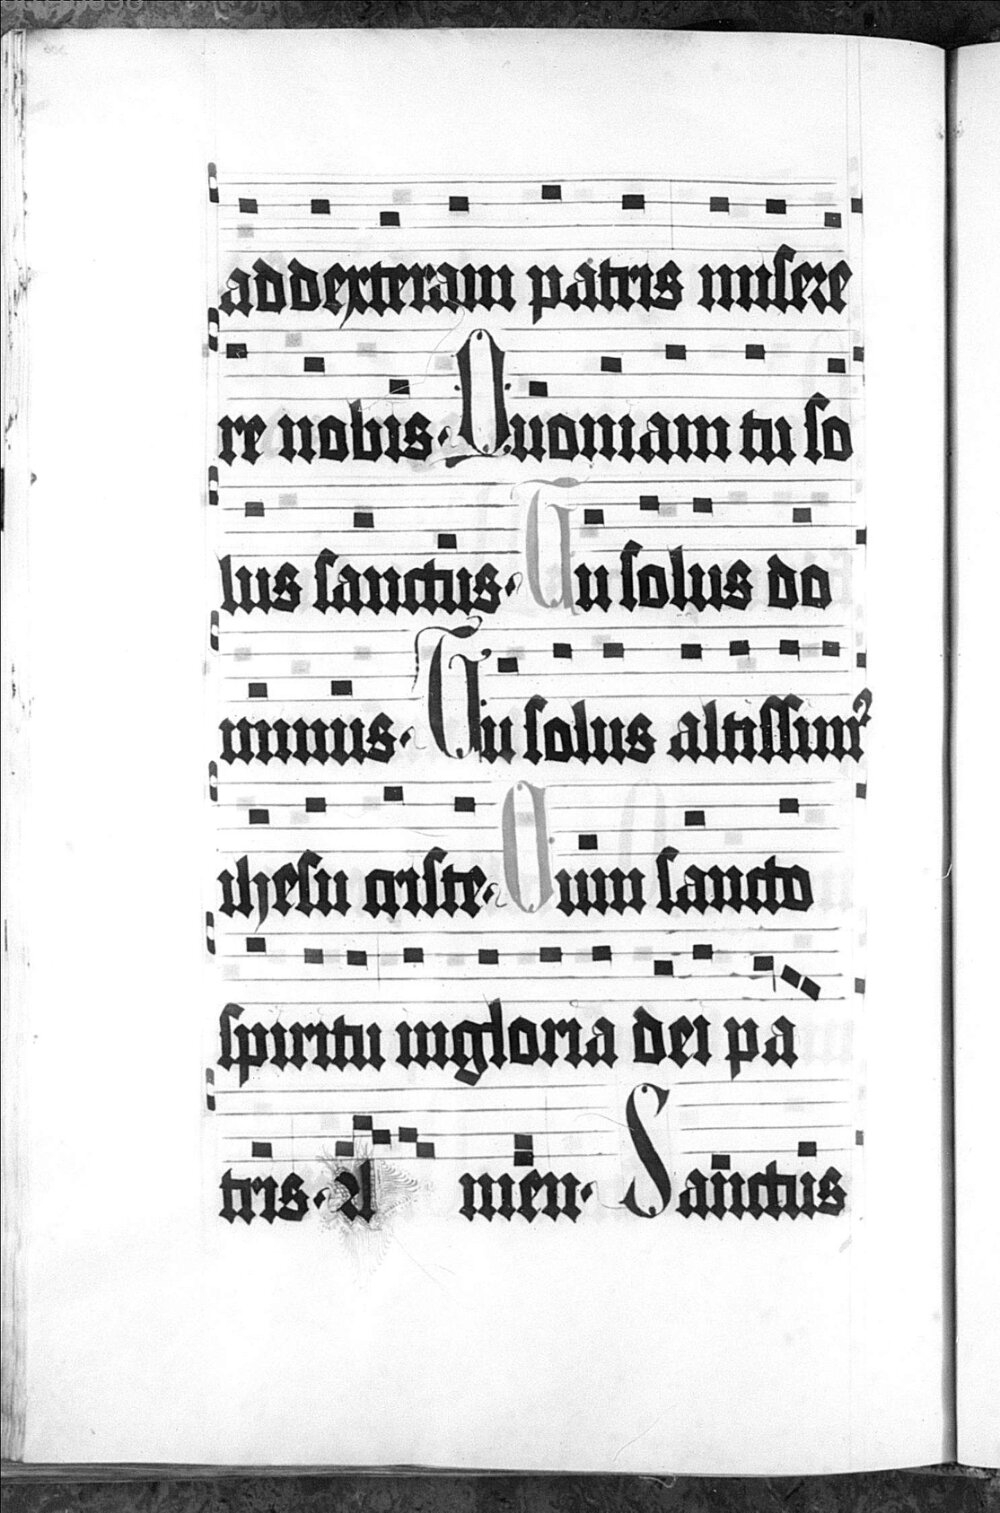 ad dexteram patris misere
re nobis. Quoniam tu so
lus sanctus. Tu solus do
minus. Tu solus altissimꝰ
ihesu criste. Cum sancto
spiritu in gloria dei pa
tris. A men. Sanctus